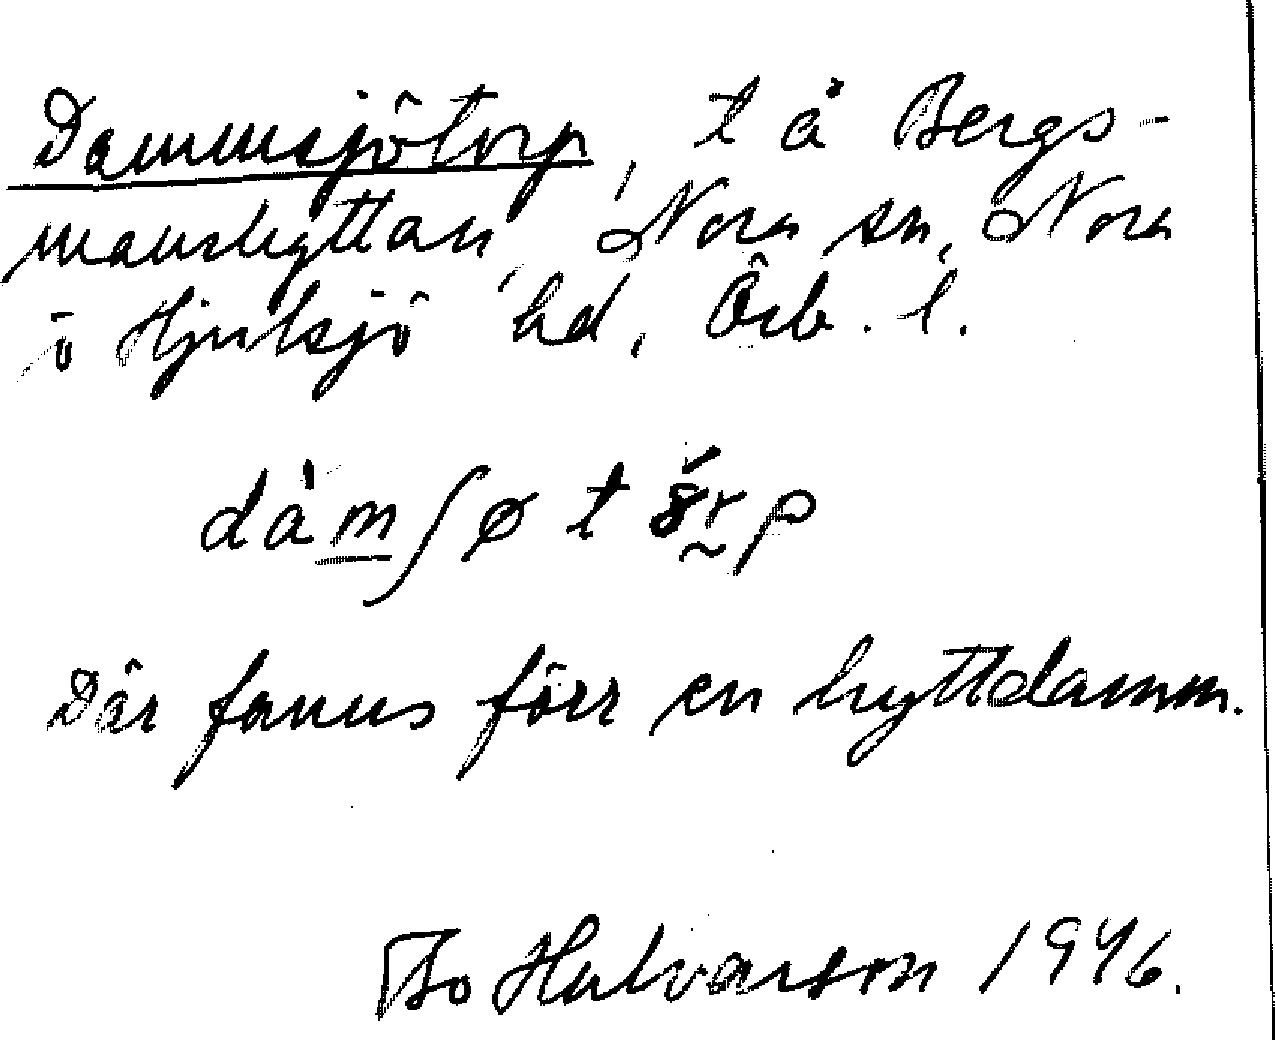 Dammsjötorp, t å Bergs-
manshyttan, Nora sn, Nora
o Hjulsjö hd, Örb. l.
dàmʃø t
Där fanns förr en hyttdamm.
Bo Halvarson 1946.